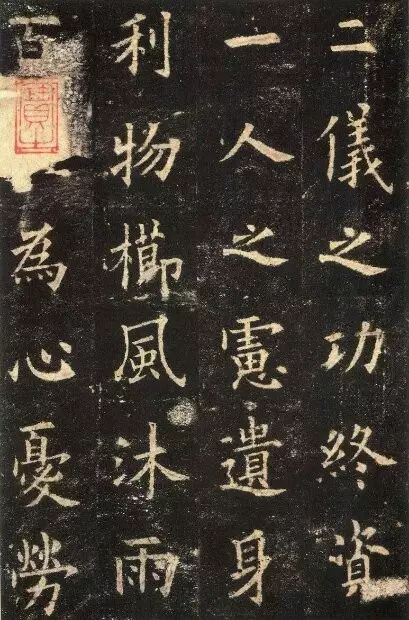 二儀之功終資
一人之慮遺身
利物櫛風沐雨
百 為心憂勞